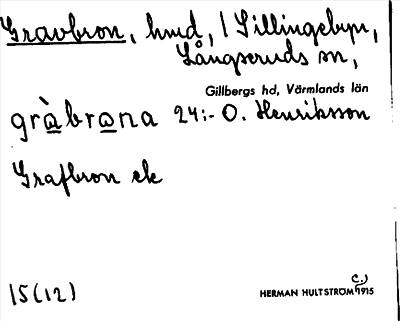 Gravbron, hmd, / Sillingebyn,
Långseruds sn,
Gillbergs hd, Värmlands län
gràbrona 24:- O. Henriksson
Grafbron ek
15(12)
C:)
HERMAN HULTSTRÖM 1915